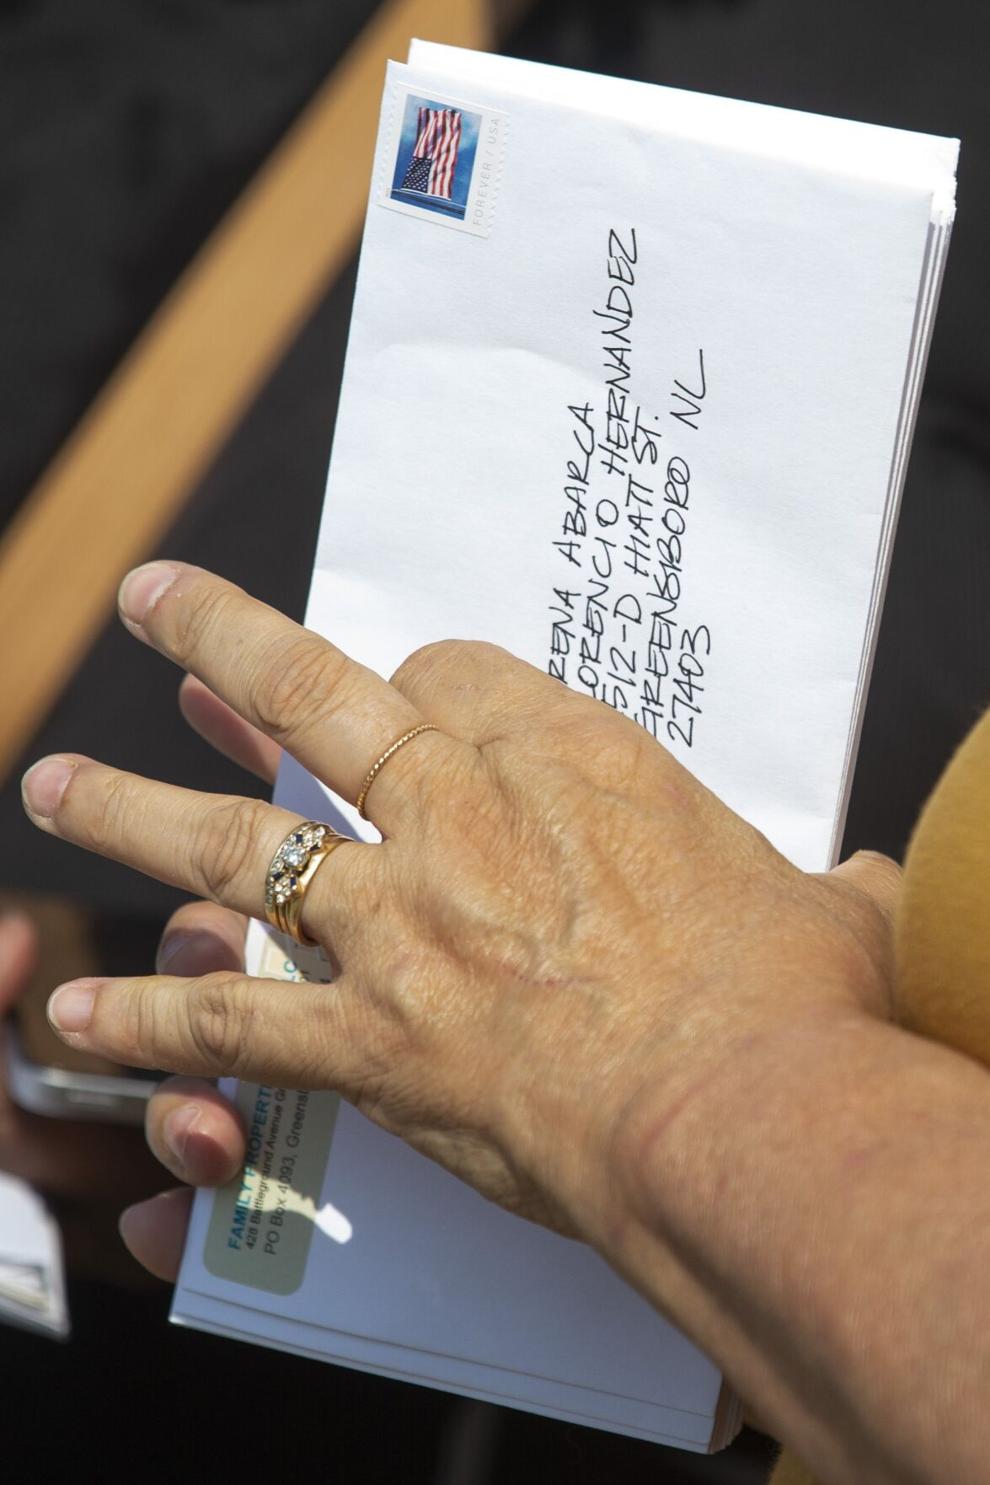 FOREVER / USA
RENA ABARCA
ORENCIO HERNANDEZ
512-D HIATT ST.
GREENSBORO NC
27403
FAMILY PROPERT
428 Battleground Avenue G
PO Box 4093, Greensb